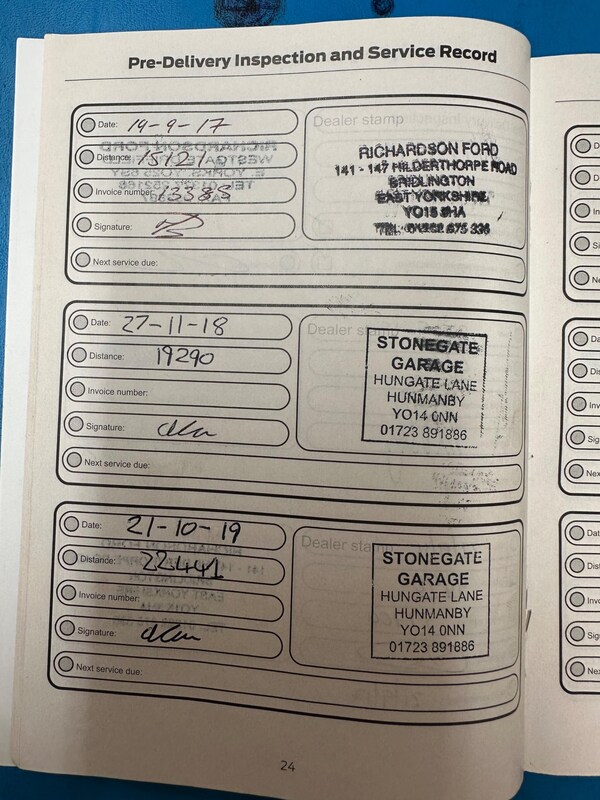 Pre-Delivery Inspection and Service Record
Date: 19-9-17
Distance: 15127
Invoice number:
Signature:
Next service due:
Dealer stamp
RICHARDSON FORD
141 - 147 HILDERTHORPE ROAD
BRIDLINGTON
EAST YORKSHIRE
YO15
TEL:
Date: 27-11-18
Distance: 19290
Invoice number:
Signature:
Next service due:
Dealer stamp
STONEGATE
GARAGE
HUNGATE LANE
HUNMANBY
YO14 0NN
01723 891886
Date: 21-10-19
Distance: 22441
Invoice number:
Signature:
Next service due:
Dealer stamp
STONEGATE
GARAGE
HUNGATE LANE
HUNMANBY
YO14 0NN
01723 891886
24